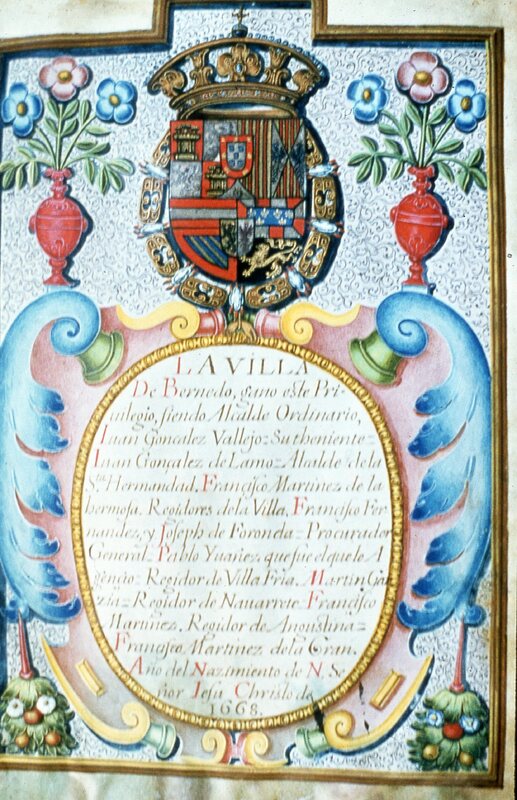 LA VILLA
De Bernedo, gano este Pri-
uilegio, siendo Alcalde Ordinario,
Iuan Gonçalez Vallejo= Su theniente=
Iuan Gonçalez de Lamo= Alcalde de la
Sta. Hermandad, Francisco Martinez de la
hermosa, Regidores de la Villa, Francisco Fer-
nandez, y Joseph de Foronda= Procurador
General, Pablo Yuañez, que fue el que le A
gençio= Regidor de Villa Fria, Martin Gar
zia= Regidor de Nauarrete, Francisco
Martinez, Regidor de Angustina=
Francisco Martinez de la Gran.
Año del Nazimiento de N. Se-
ñor Jesu Christo de
1668.